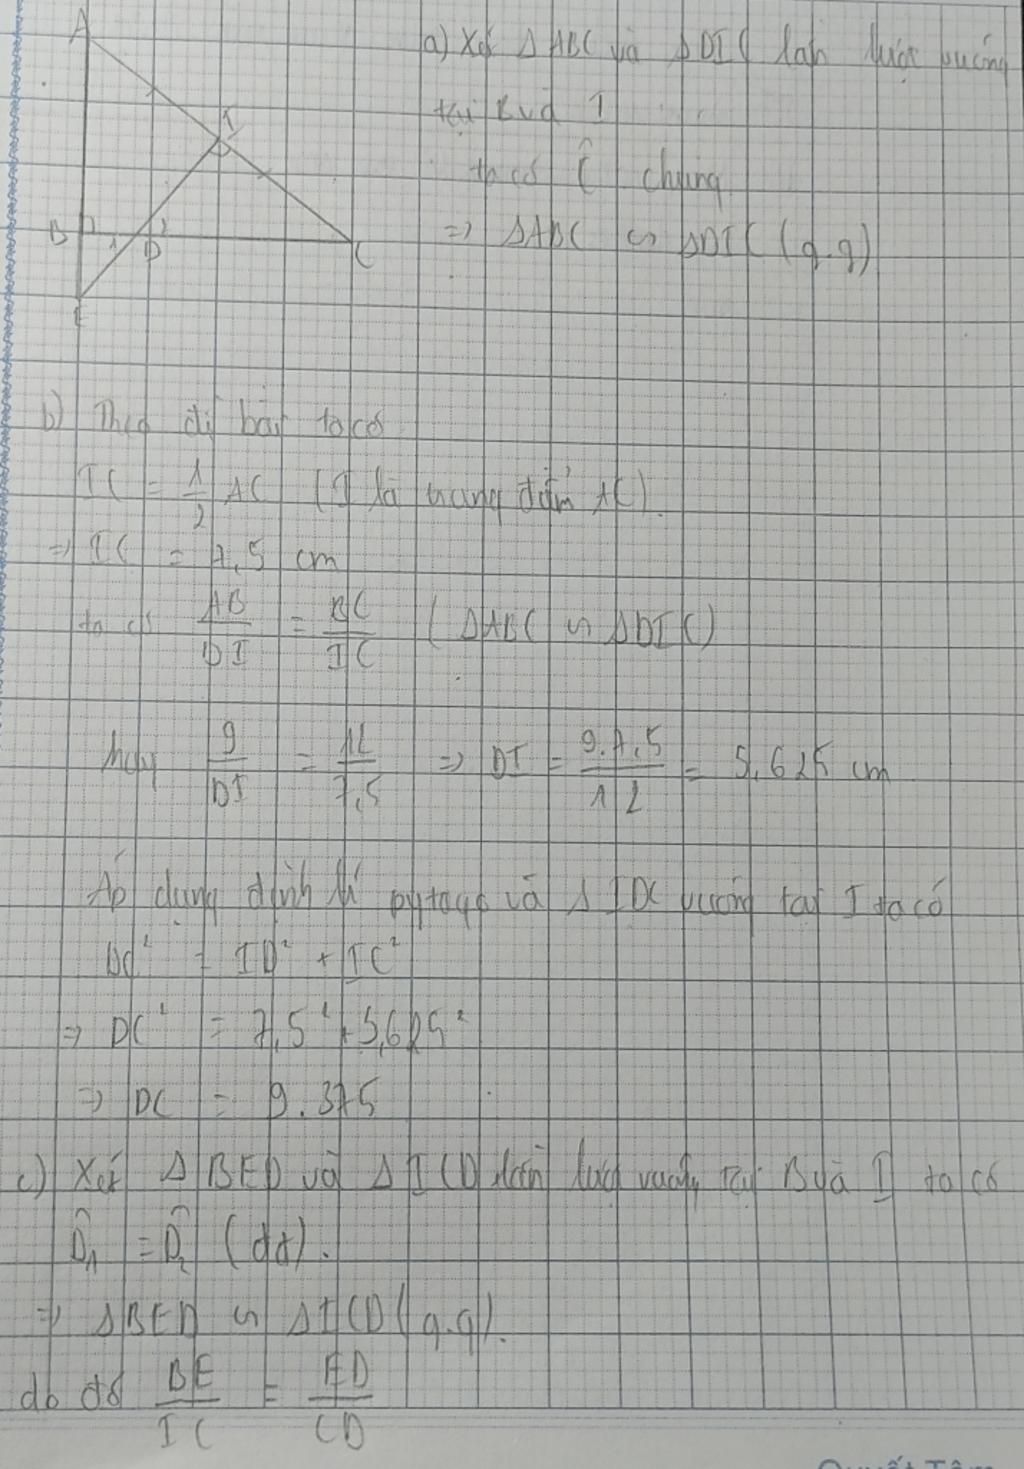 A
I
B
1
D
2
C
E
a) Xét Δ ABC và Δ DIC lần lượt vuông
tại B và I
ta có Ĉ chung
=> ΔABC ∽ ΔDIC (g.g)
b) Theo đề bài ta có
IC = 1/2 AC (I là trung điểm AC).
=> IC = 7,5 cm
ta có AB/DI = BC/IC (ΔABC ∽ ΔDIC)
hay 9/DI = 12/7,5 => DI = 9.7,5/12 = 5,625 cm
Áp dụng định lí pytago và Δ IDC vuông tại I ta có
DC² = ID² + IC²
=> DC² = 7,5² + 5,625²
=> DC = 9.375
c) Xét Δ BED và Δ ICD lần lượt vuông tại B và I ta có
D̂₁ = D̂₂ (dd).
=> ΔBED ∽ ΔICD (g.g).
do đó BE/IC = ED/CD
Quyết Tâm